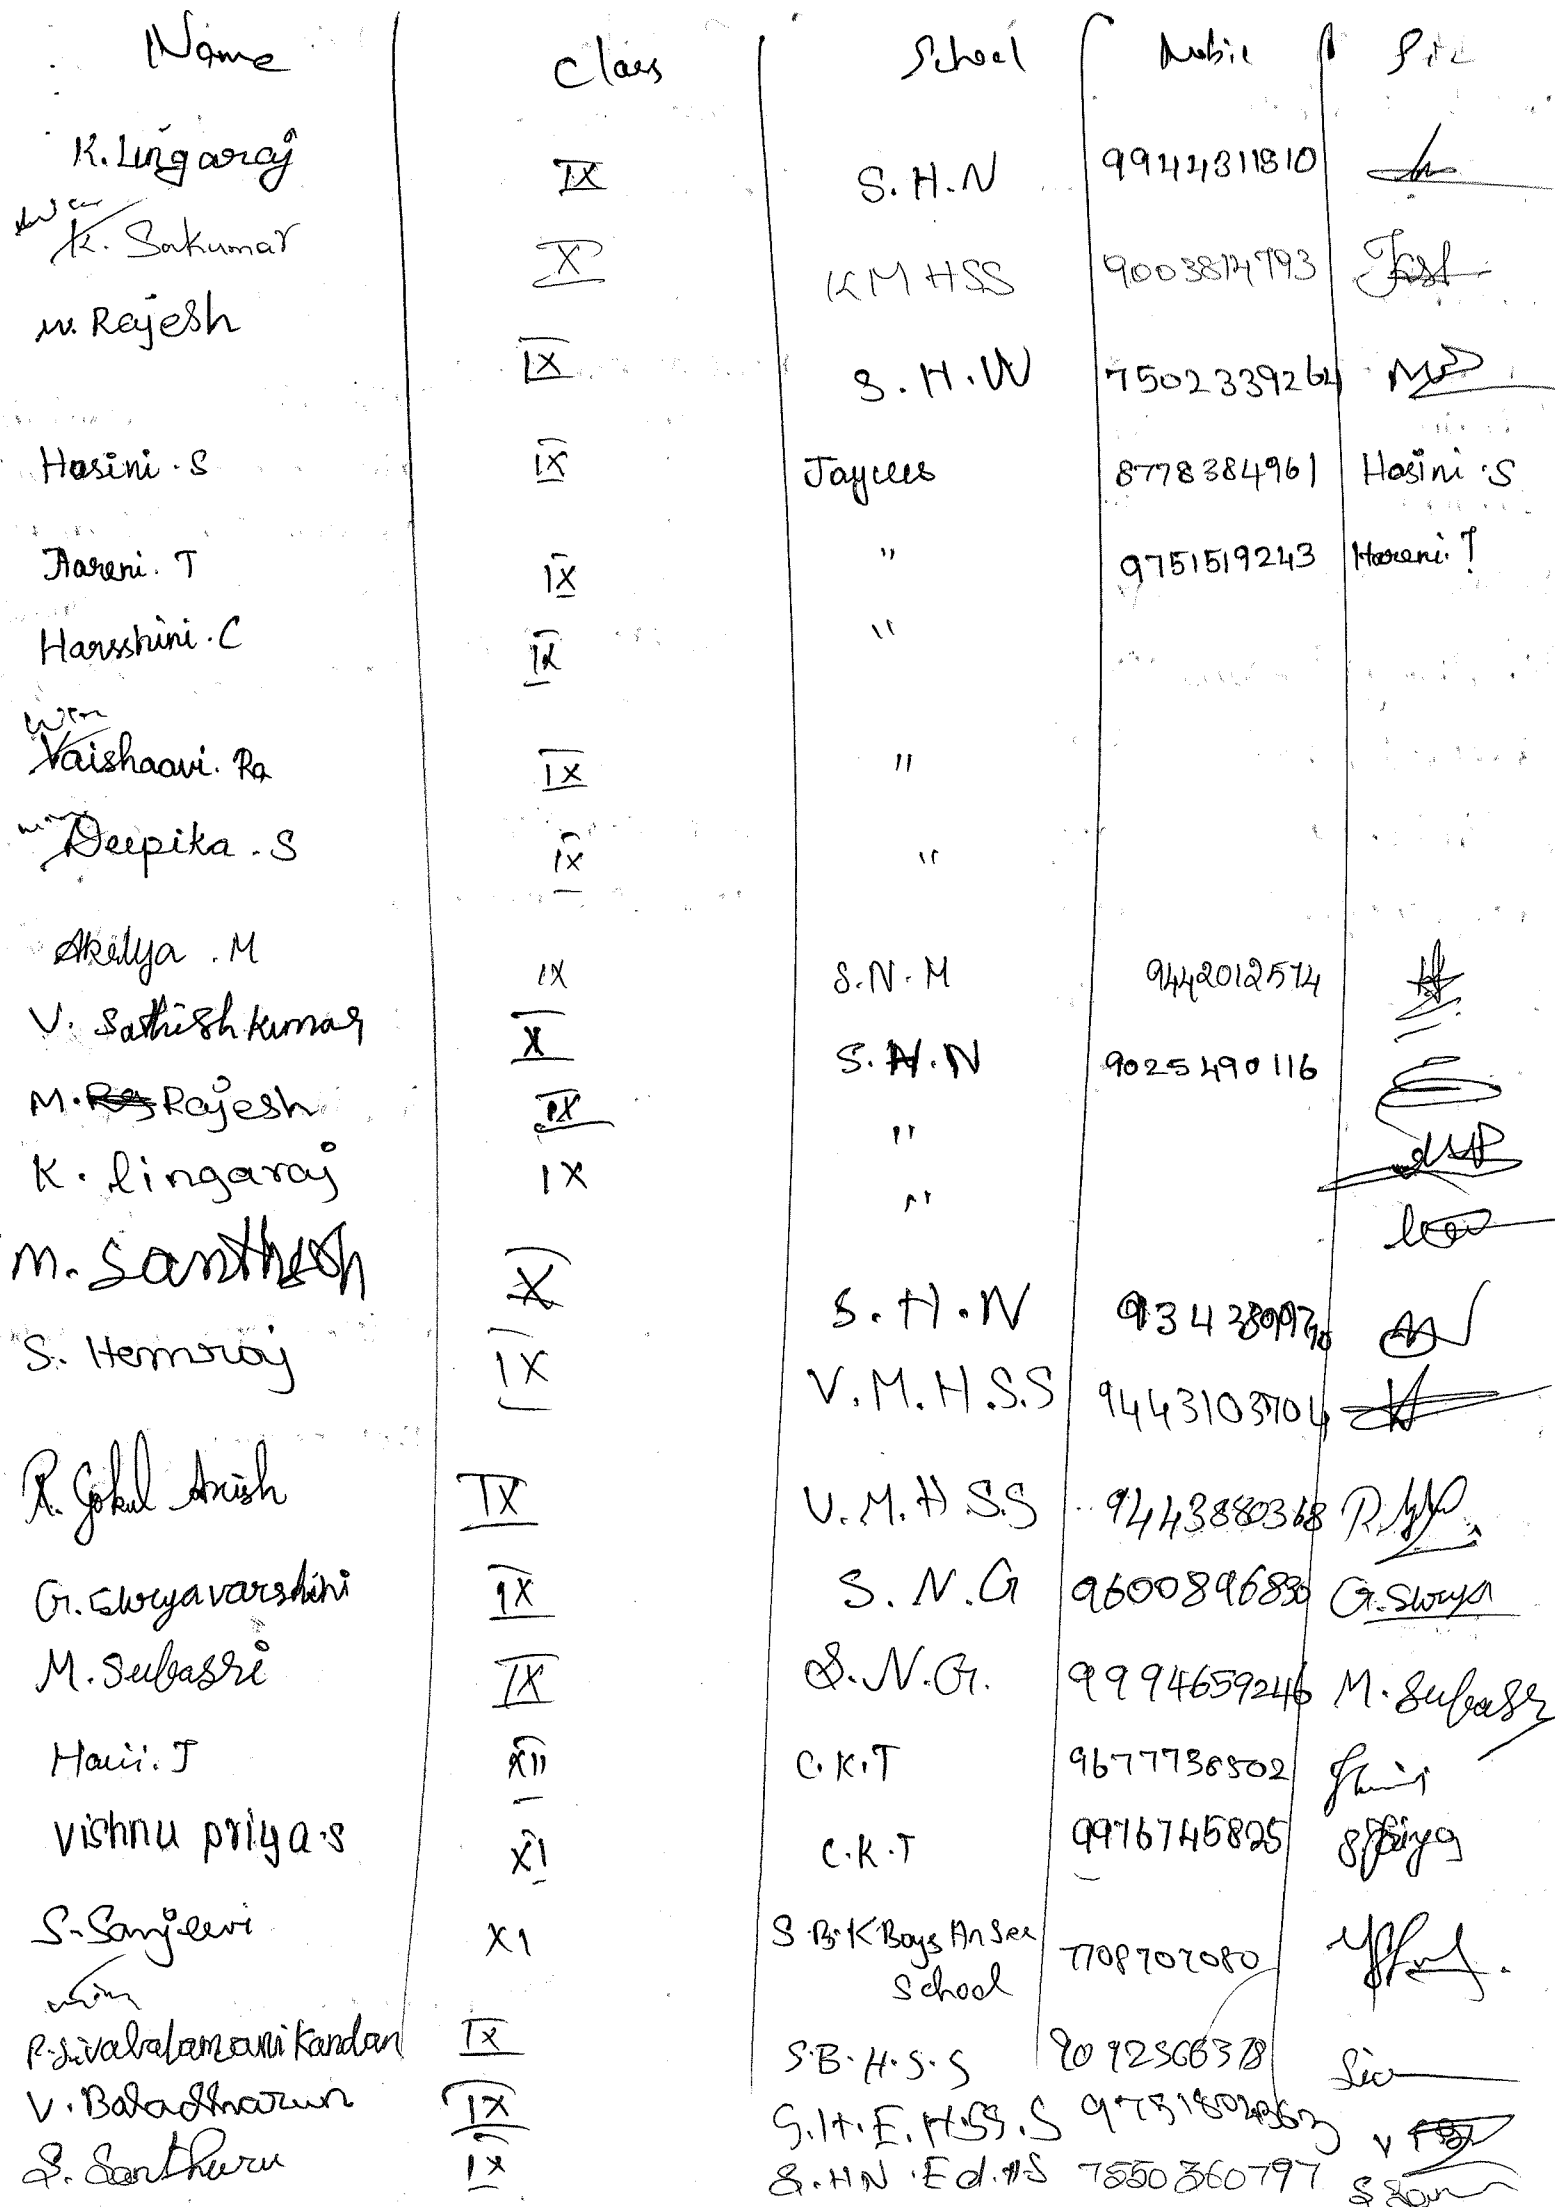 Name Class School Mobil
K. Lingaraj IX S.H.N 9944311810
K. Sakumar X KMHSS 9003814793
M. Rajesh IX S.H.N 7502339264
Hasini.S IX Jaycees 8778384961 Hasini.S
Hareni.T IX " 9751519243 Hareni.T
Harsshini.C IX "
Win
Vaishaavi. Ra IX "
Deepika.S IX "
Akilya.M IX S.N.M 9442012574
V. Sathish kumar X S.H.N 9025490116
M. Rajesh IX "
K. lingaraj IX "
M. Santhosh X S.H.N
S. Hemraj IX V.M.H.S.S 9443103704
R. Gokul Anish IX V.M.H.S.S 9443880368
G. Suryavarshini IX S.N.G 9600896830 G. Surya
M. Subasri IX S.N.G. 9994659246 M. Subasr
Harii.J XII C.K.T 9677738502
Vishnu priya.s XI C.K.T 9976745825 S Priya
S. Sanjeevi XI S.B.K Boys Hr Sec 7708707080
School
P. Sivabalamanikandan IX S.B.H.S.S 9092566378
V. Baladharun IX G.H.E.H.SS.S
S. Santhuru IX S.HN.Ed.HS 7550360797